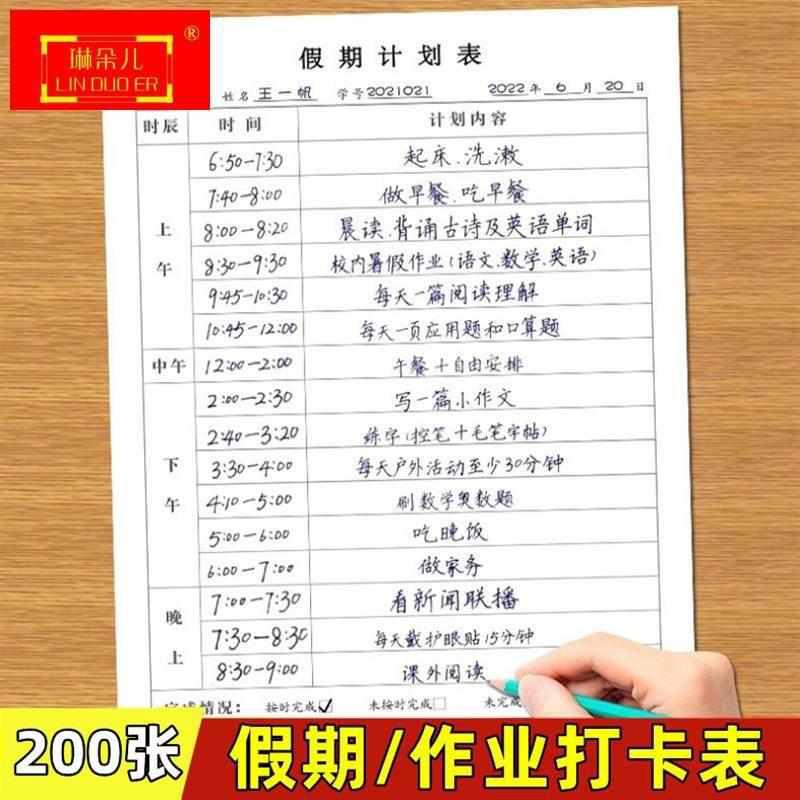 琳朵儿®
LIN DUO ER
假期计划表
姓名 王一帆 学号 2021021 2022年 6 月 20 日
时辰 时间 计划内容
上午
6:50-7:30 起床、洗漱
7:40-8:00 做早餐、吃早餐
8:00-8:20 晨读、背诵古诗及英语单词
8:30-9:30 校内暑假作业(语文、数学、英语)
9:45-10:30 每天一篇阅读理解
10:45-12:00 每天一页应用题和口算题
中午 12:00-2:00 午餐+自由安排
下午
2:00-2:30 写一篇小作文
2:40-3:20 练字(控笔+毛笔字帖)
3:30-4:00 每天户外活动至少30分钟
4:10-5:00 刷数学奥数题
5:00-6:00 吃晚饭
6:00-7:00 做家务
晚上
7:00-7:30 看新闻联播
7:30-8:30 每天戴护眼贴15分钟
8:30-9:00 课外阅读
完成情况: 按时完成☑ 未按时完成☐ 未完
200张 假期/作业打卡表